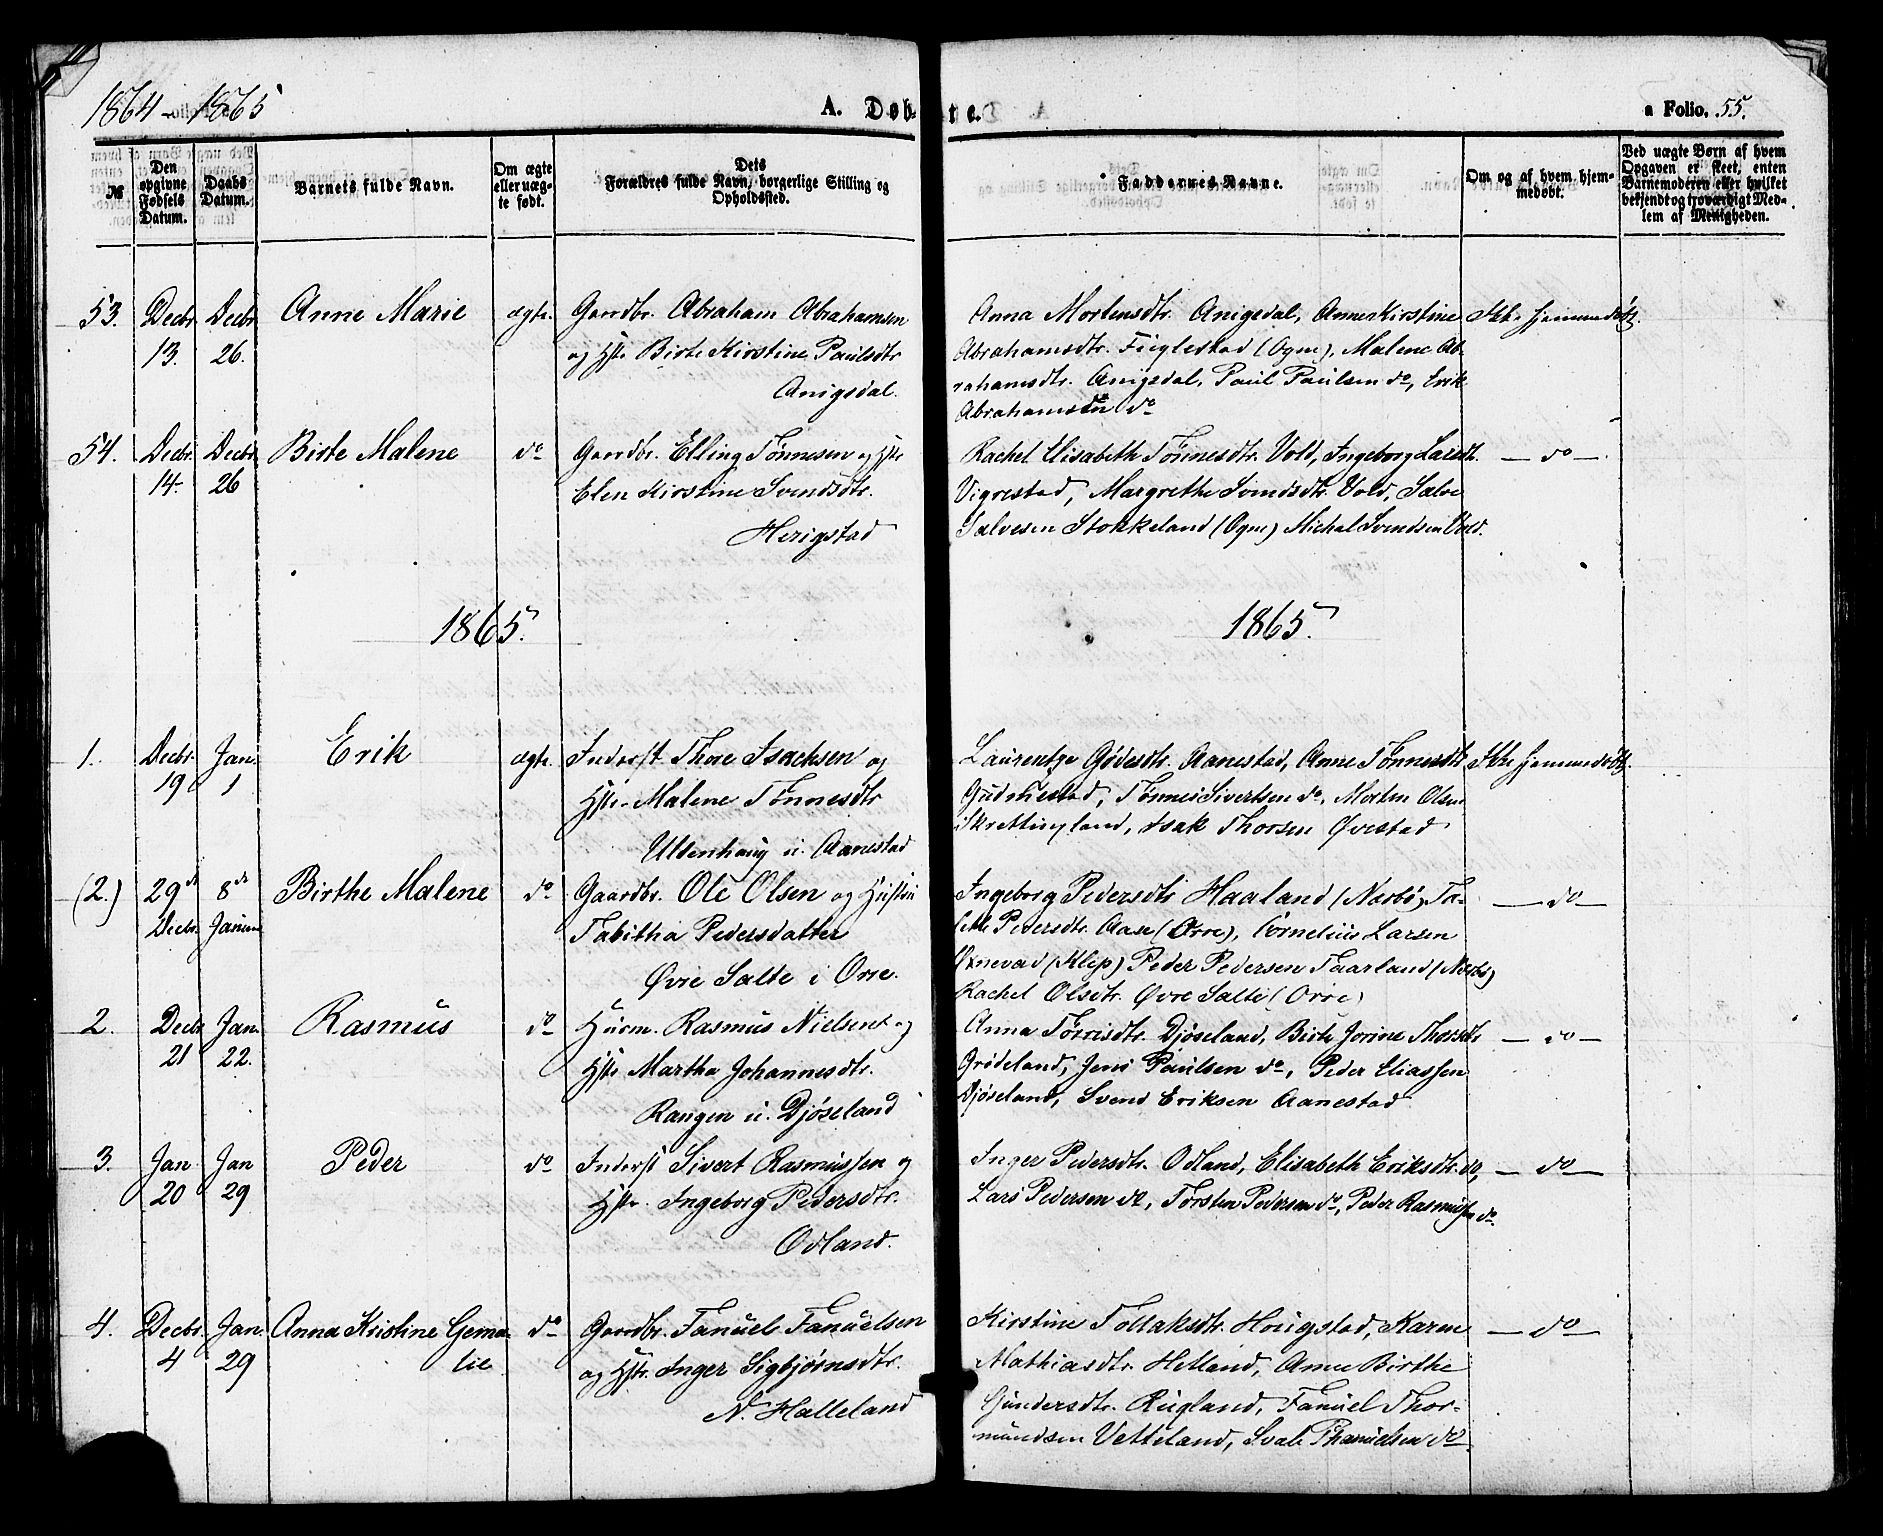 1864-1865
A. Døb-te.
a Folio. 55.
№
Den opgivne Fødsels Datum.
Daabs Datum.
Barnets fulde Navn.
Om ægte eller uægte født.
Dets Forældres fulde Navn, borgerlige Stilling og Opholdssted.
Faddernes Navne.
Om og af hvem hjemmedøbt.
Ved uægte Børn af hvem Opgaven er skeet, enten Barnemoderen eller hvilket bekjendt og troværdigt Medlem af Menigheden.
53. Decbr. 13. Decbr. 26. Anne Marie ægte.
Gaardbr. Abraham Abrahamsen
og Hstr Birte Kirstine Paulsdtr
Anigsdal.
Anna Mortensdtr. Anigsdal, Anne Kirstine
Abrahamsdtr. Fuglestad (Ogne), Malene Ab-
rahamsdtr. Anigsdal, Paul Paulsen do, Erik
Abrahamsen do
Ikke hjemmedøbt.
54. Decbr. 14. Decbr. 26 Birte Malene do
Gaardbr. Elling Tønnesen og Hstr
Elen Kirstine Svendsdtr.
Herigstad
Rachel Elisabeth Tønnesdtr. Vold, Ingeborg Larsdtr.
Vigrestad, Margrethe Svendsdtr. Vold, Salve
Salvesen Stokkeland (Ogne) Michal Svendsen Vold.
— do —
1865.
1865.
1. Decbr. 19 Jan. 1 Erik ægte.
Inderst Thore Isachsen og
Hstr. Malene Tønnesdtr
Uldenhaug u. Aanestad
Laurentze Gødesdtr. Aanestad, Anne Tønnesdtr
Tønnes Sivertsen do, Morten Olsen
Skrettingland, Isak Thorsen Øvestad
Ikke hjemmedøbt.
(2.) 29de Decbr. 8de Januar Birthe Malene do
Gaardbr. Ole Olsen og Hustru
Tabitha Pedersdatter
Øvre Salte i Orre.
Ingeborg Pedersdtr Haaland (Nærbø), Ta-
Pedersdtr. Aase (Orre), Cornelius Larsen
Øxnevad (Klep) Peder Pedersen Taarland (Nærbø)
Rachel Olsdtr. Øvre Salte (Orre)
— do —
2. Decbr 21 Jan. 22. Rasmus do
Huusm. Rasmus Nielsen og
Hstr Martha Johannesdtr.
Rangen u. Djøseland
Anna Tørrisdtr. Djøseland, Birte Jorine Thorsdtr
Grødeland, Jens Paulsen do, Peder Eliassen
Djøseland, Svend Eriksen Aanestad
— do —
3. Jan 20 Jan 29 Peder do
Inderst Sivert Rasmussen og
Hstr. Ingeborg Pedersdtr.
Odland.
Inger Pedersdtr. Odland, Elisabeth Eriksdtr. do,
Lars Pedersen do, Torsten Pedersen do, Peder Rasmussen do.
— do —
4. Decbr. 4 Jan. 29 Anna Kristine Gema-
lie do
Gaardbr. Fanuel Fanuelsen
og Hstr. Inger Sigbjørnsdtr.
N. Halleland
Kirstine Tollaksdtr. Hougstad, Karen
Mathiasdtr. Hetland, Anne Birthe
Gundersdtr. Rugland, Fanuel Thor-
mundsen Vetteland, Svale Phanuelsen do
— do —